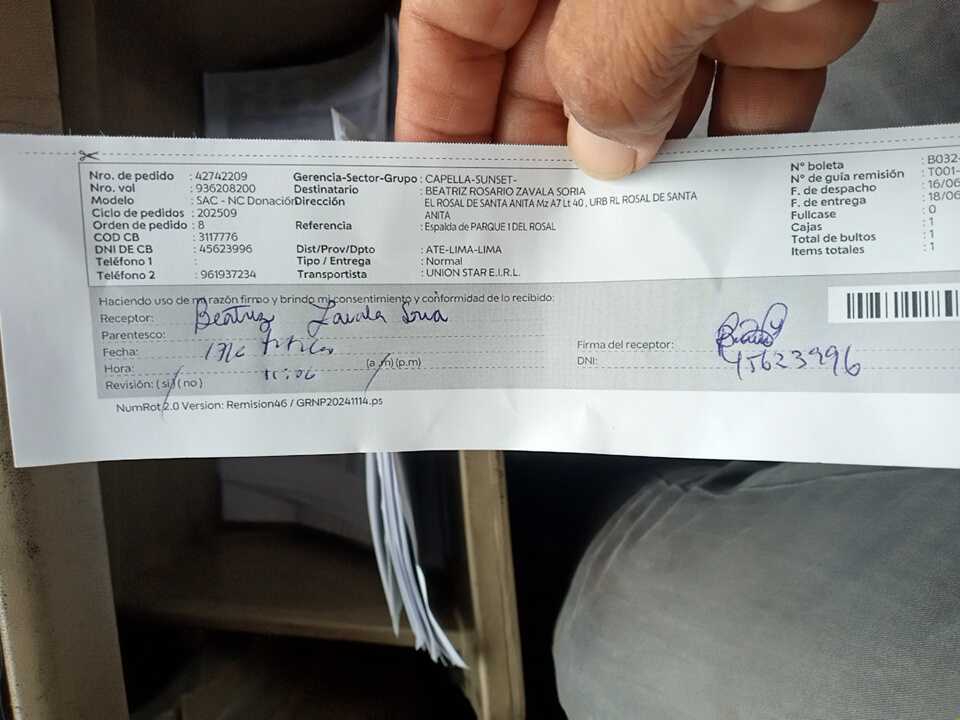 Nro. de pedido : 42742209
Nro. vol : 936208200
Modelo : SAC - NC Donación
Ciclo de pedidos : 202509
Orden de pedido : 8
COD CB : 3117776
DNI DE CB : 45623996
Teléfono 1 :
Teléfono 2 : 961937234
Gerencia-Sector-Grupo : CAPELLA-SUNSET-
Destinatario : BEATRIZ ROSARIO ZAVALA SORIA
Dirección EL ROSAL DE SANTA ANITA Mz A7 Lt 40 , URB RL ROSAL DE SANTA
ANITA
Referencia : Espalda de PARQUE 1 DEL ROSAL
Dist/Prov/Dpto : ATE-LIMA-LIMA
Tipo / Entrega : Normal
Transportista : UNION STAR E.I.R.L.
N° boleta : B032-
N° de guía remisión : T001-
F. de despacho : 16/06
F. de entrega : 18/06
Fullcase : 0
Cajas : 1
Total de bultos : 1
Items totales : 1
Haciendo uso de mi razón firmo y brindo mi consentimiento y conformidad de lo recibido:
Receptor: Beatriz Zavala Soria
Parentesco: Titular
Fecha: 17/6
Hora: 11:06 (a.m) (p.m)
Revisión: ( si ) ( no )
Firma del receptor:
DNI: 45623996
NumRot 2.0 Version: Remision46 / GRNP20241114.ps